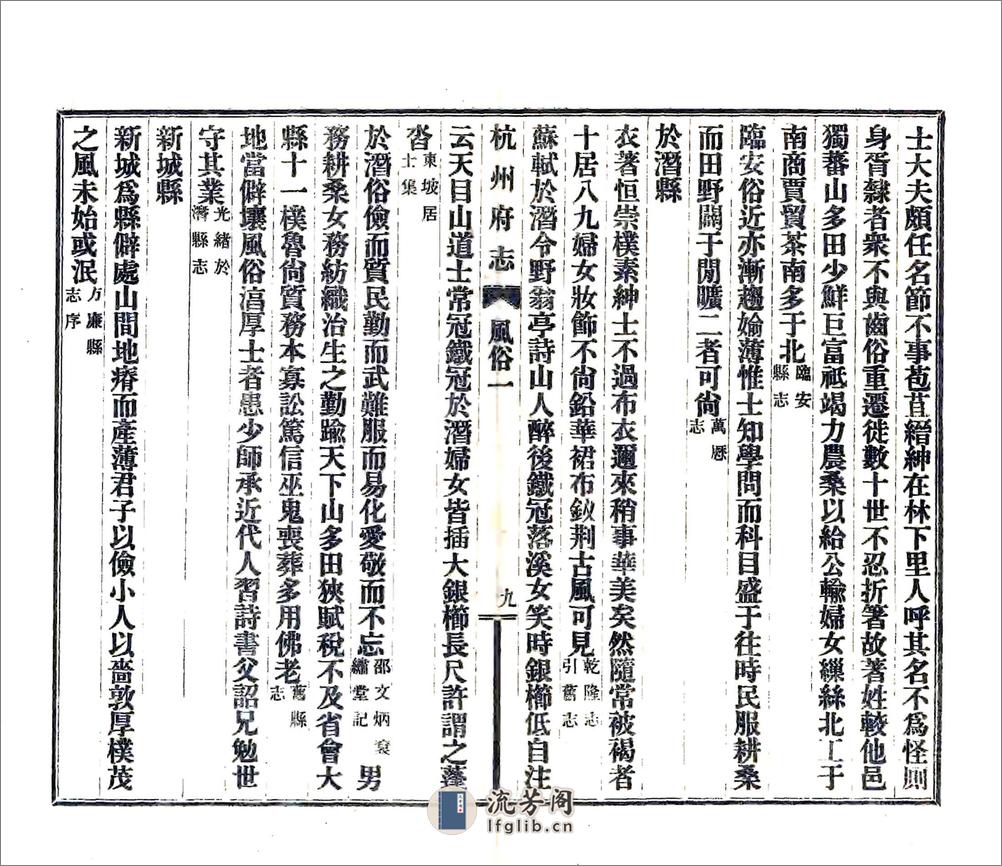 士大夫頗任名節不事苞苴縉紳在林下里人呼其名不爲怪厠
身胥隸者衆不與齒俗重遷徙數十世不忍折箸故著姓較他邑
獨蕃山多田少鮮巨富祗竭力農桑以給公輸婦女繅絲北工于
南商賈貿茶南多于北臨安縣志
臨安俗近亦漸趨媮薄惟士知學問而科目盛于往時民服耕桑
而田野闢于閒曠二者可尙萬厯志
於潛縣
衣著恒崇樸素紳士不過布衣邇來稍事華美矣然隨常被褐者
十居八九婦女妝節不尙鉛華裙布釵荆古風可見乾隆志引舊志
蘇軾於潛令野翁亭詩山人醉後鐵冠落溪女笑時銀櫛低自注
杭州府志 風俗一 九
云天目山道士常冠鐵冠於潛婦女皆插大銀櫛長尺許謂之蓬
沓東坡居士集
於潛俗儉而質民勤而武難服而易化愛敬而不忘邵文炳袞繡堂記男
務耕桑女務紡織治生之勤踰天下山多田狹賦稅不及省會大
縣十一樸魯尙質務本寡訟篤信巫鬼喪葬多用佛老舊縣志
地當僻壤風俗湻厚士者患少師承近代人習詩書父詔兄勉世
守其業光緒於潛縣志
新城縣
新城爲縣僻處山間地瘠而產薄君子以儉小人以嗇敦厚樸茂
之風未始或泯方廉縣志序
流芳阁
lfglib.cn